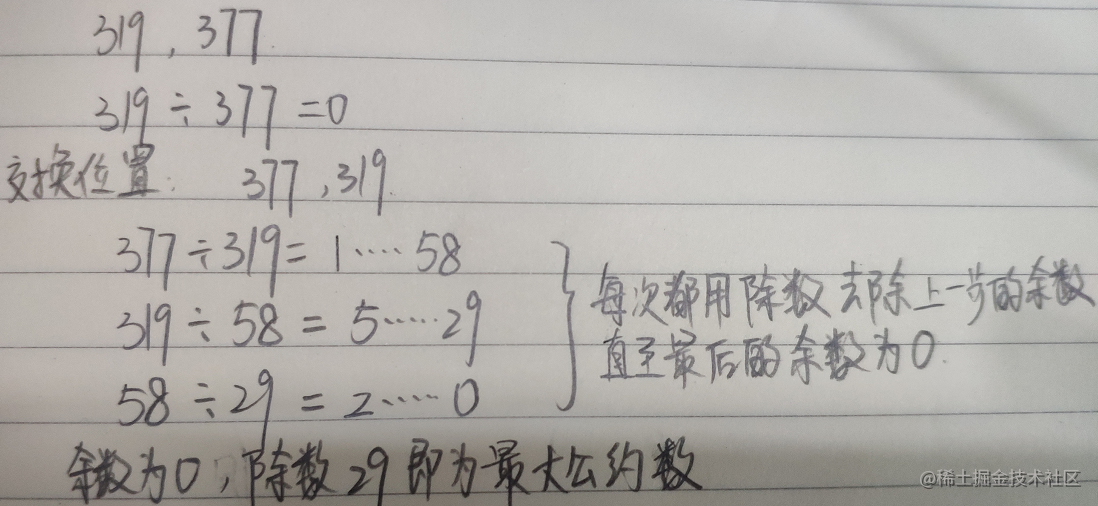 319，377.
319 ÷ 377 = 0
交换位置： 377，319.
377 ÷ 319 = 1 ····· 58
319 ÷ 58 = 5 ····· 29
58 ÷ 29 = 2 ····· 0
每次都用除数去除上一步的余数
直至最后的余数为0.
余数为0，除数29即为最大公约数
@稀土掘金技术社区